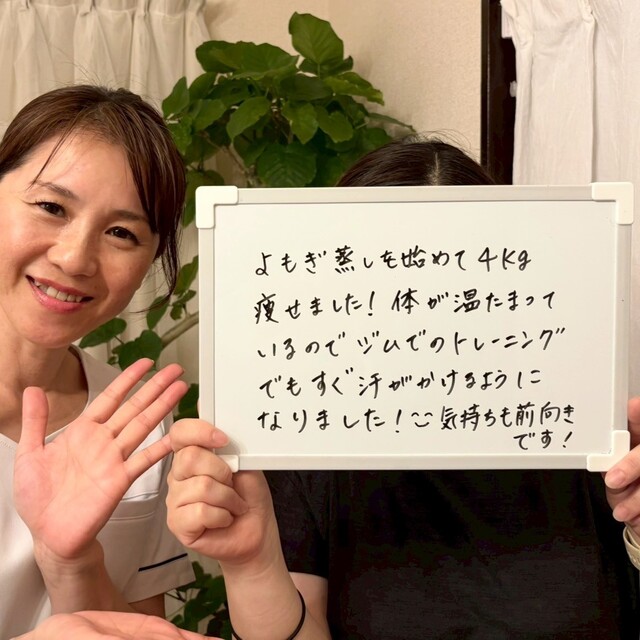 よもぎ蒸しを始めて4Kg
痩せました！体が温たまって
いるのでジムでのトレーニング
でもすぐ汗がかけるように
なりました！気持ちも前向き
です！